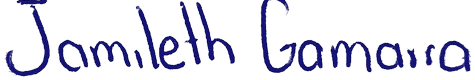 Jamileth Gamarra